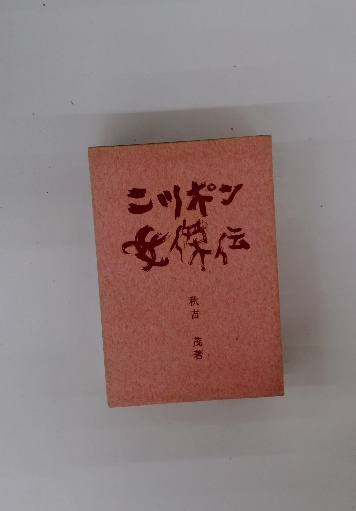 ニッポン
女傑伝
秋吉 茂著